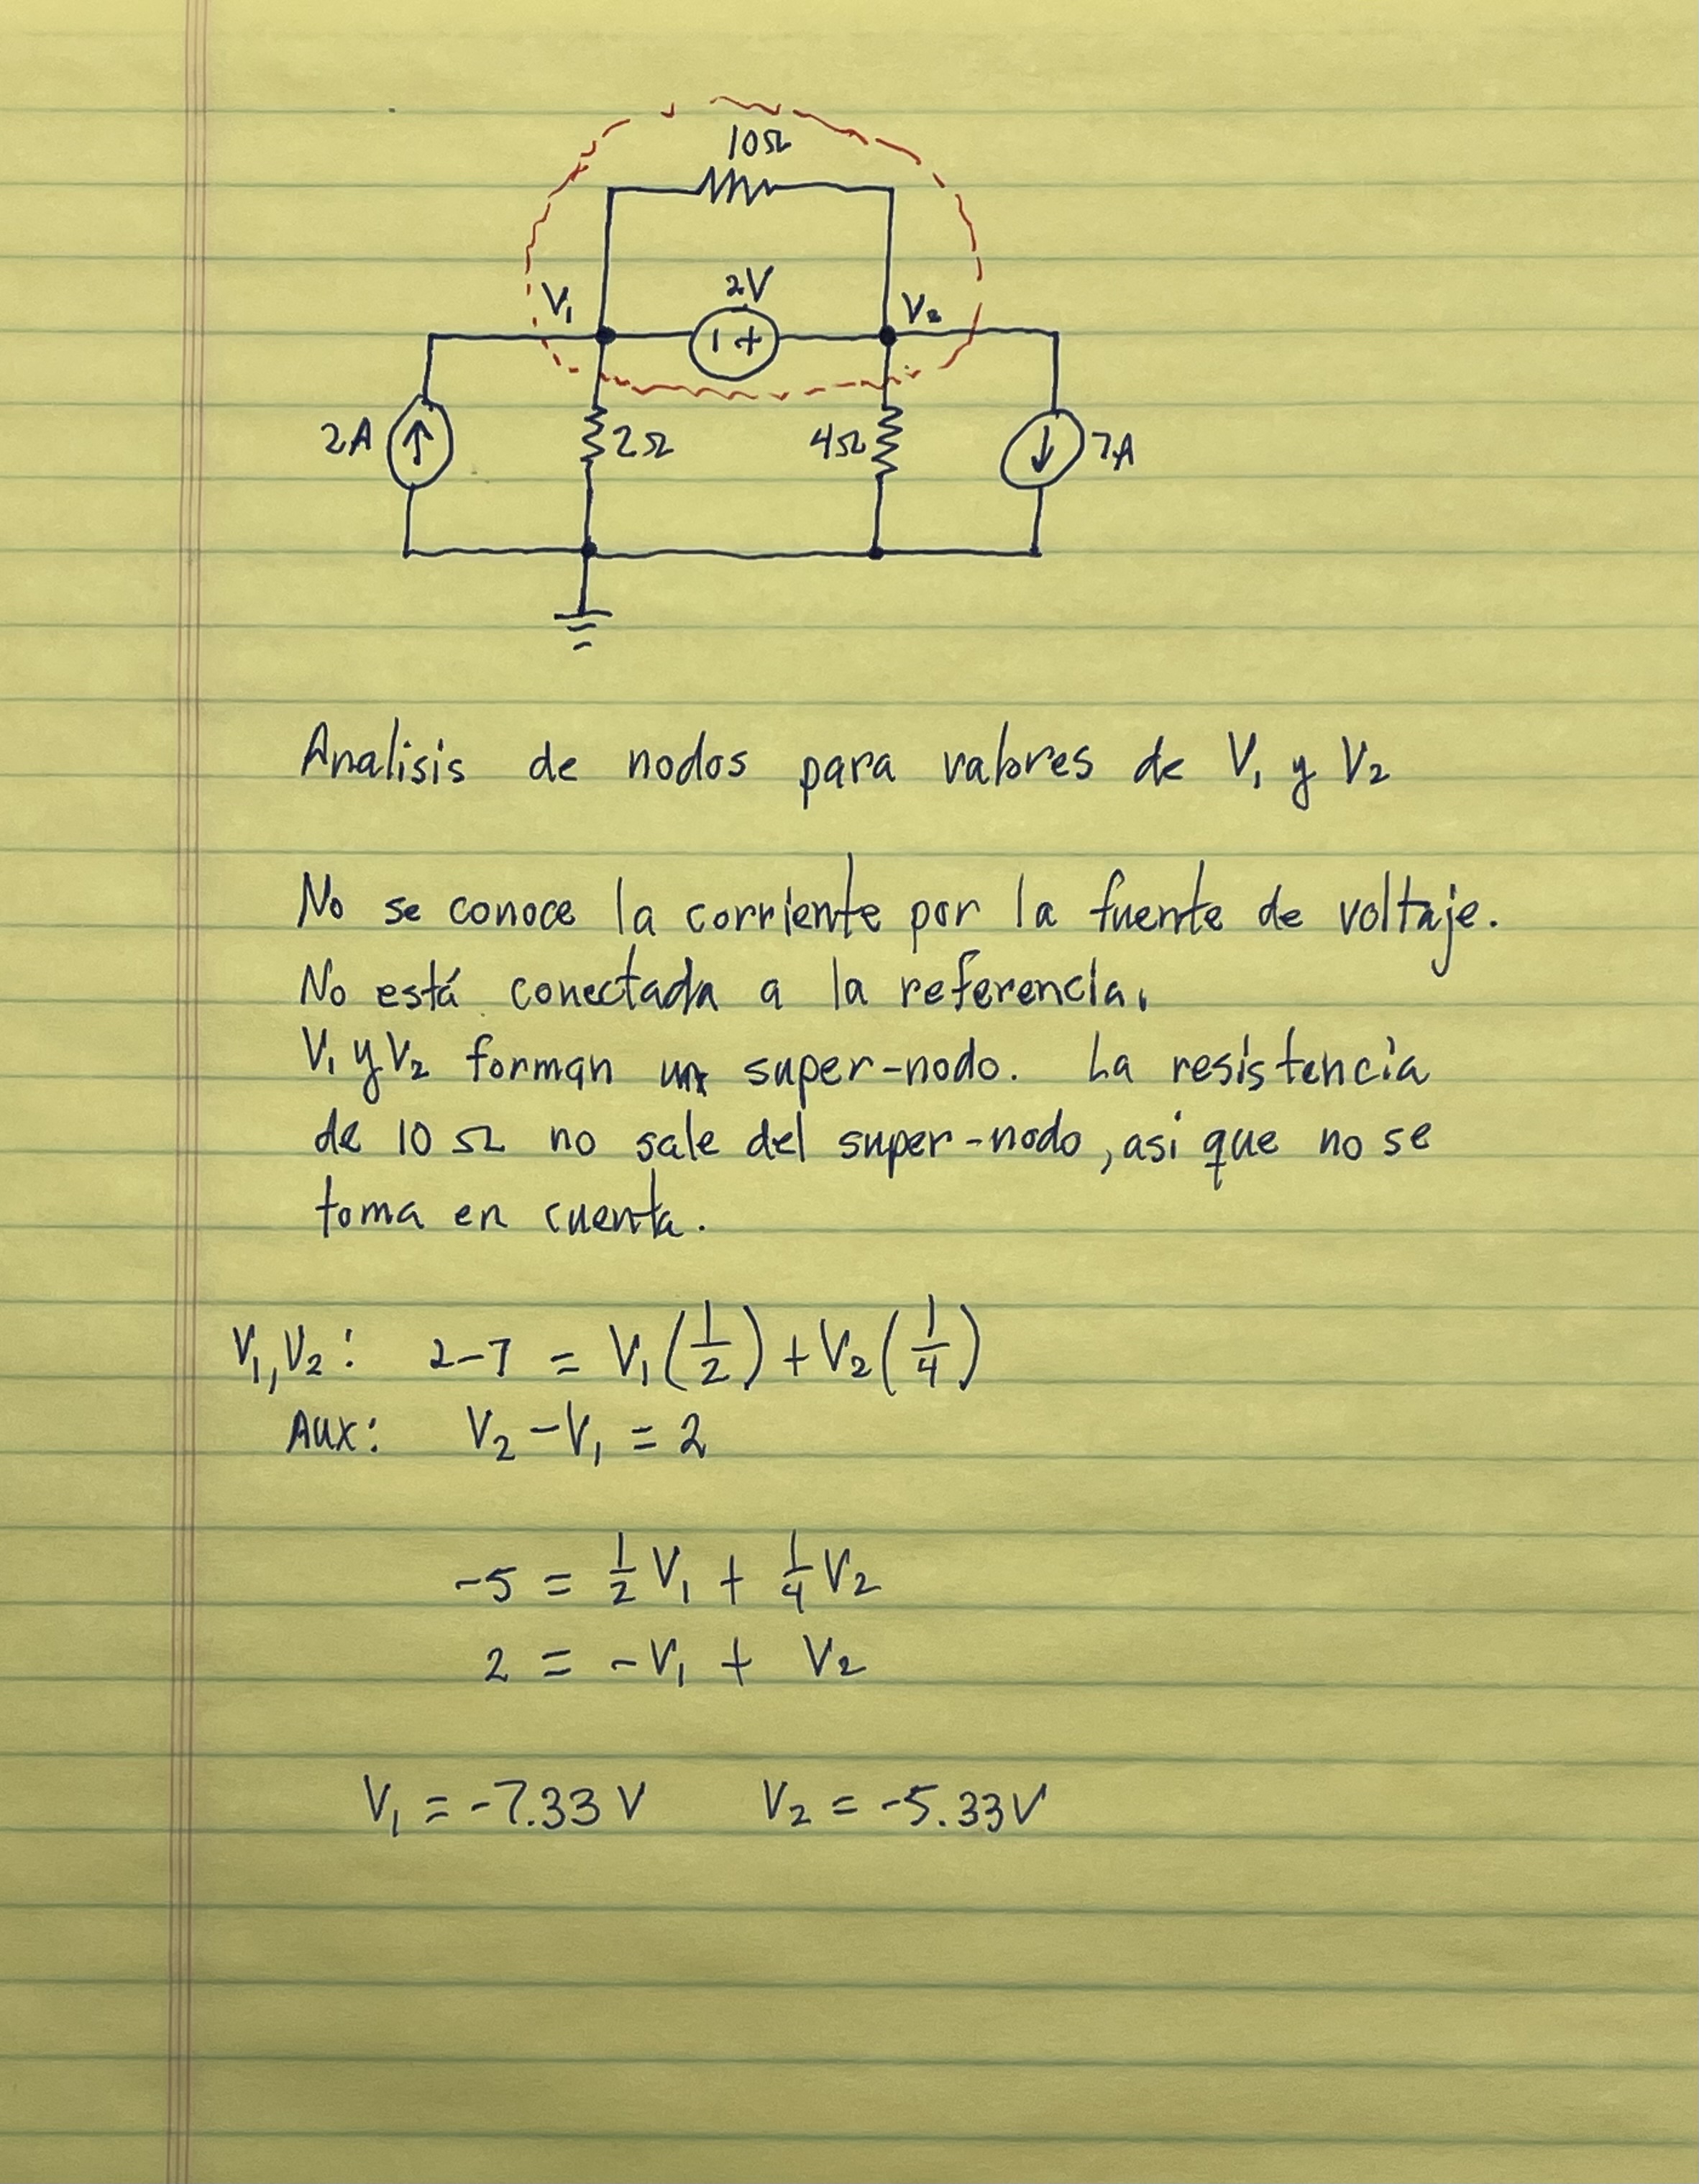 10Ω
2V
V₁
V₂
2A
2Ω
4Ω
7A
Analisis de nodos para valores de V₁ y V₂
No se conoce la corriente por la fuente de voltaje.
No está conectada a la referencia.
V₁ y V₂ forman un super-nodo. La resistencia
de 10 Ω no sale del super-nodo, asi que no se
toma en cuenta.
V₁, V₂: 2-7 = V₁(1/2) + V₂(1/4)
Aux: V₂ - V₁ = 2
-5 = 1/2 V₁ + 1/4 V₂
2 = -V₁ + V₂
V₁ = -7.33 V V₂ = -5.33 V